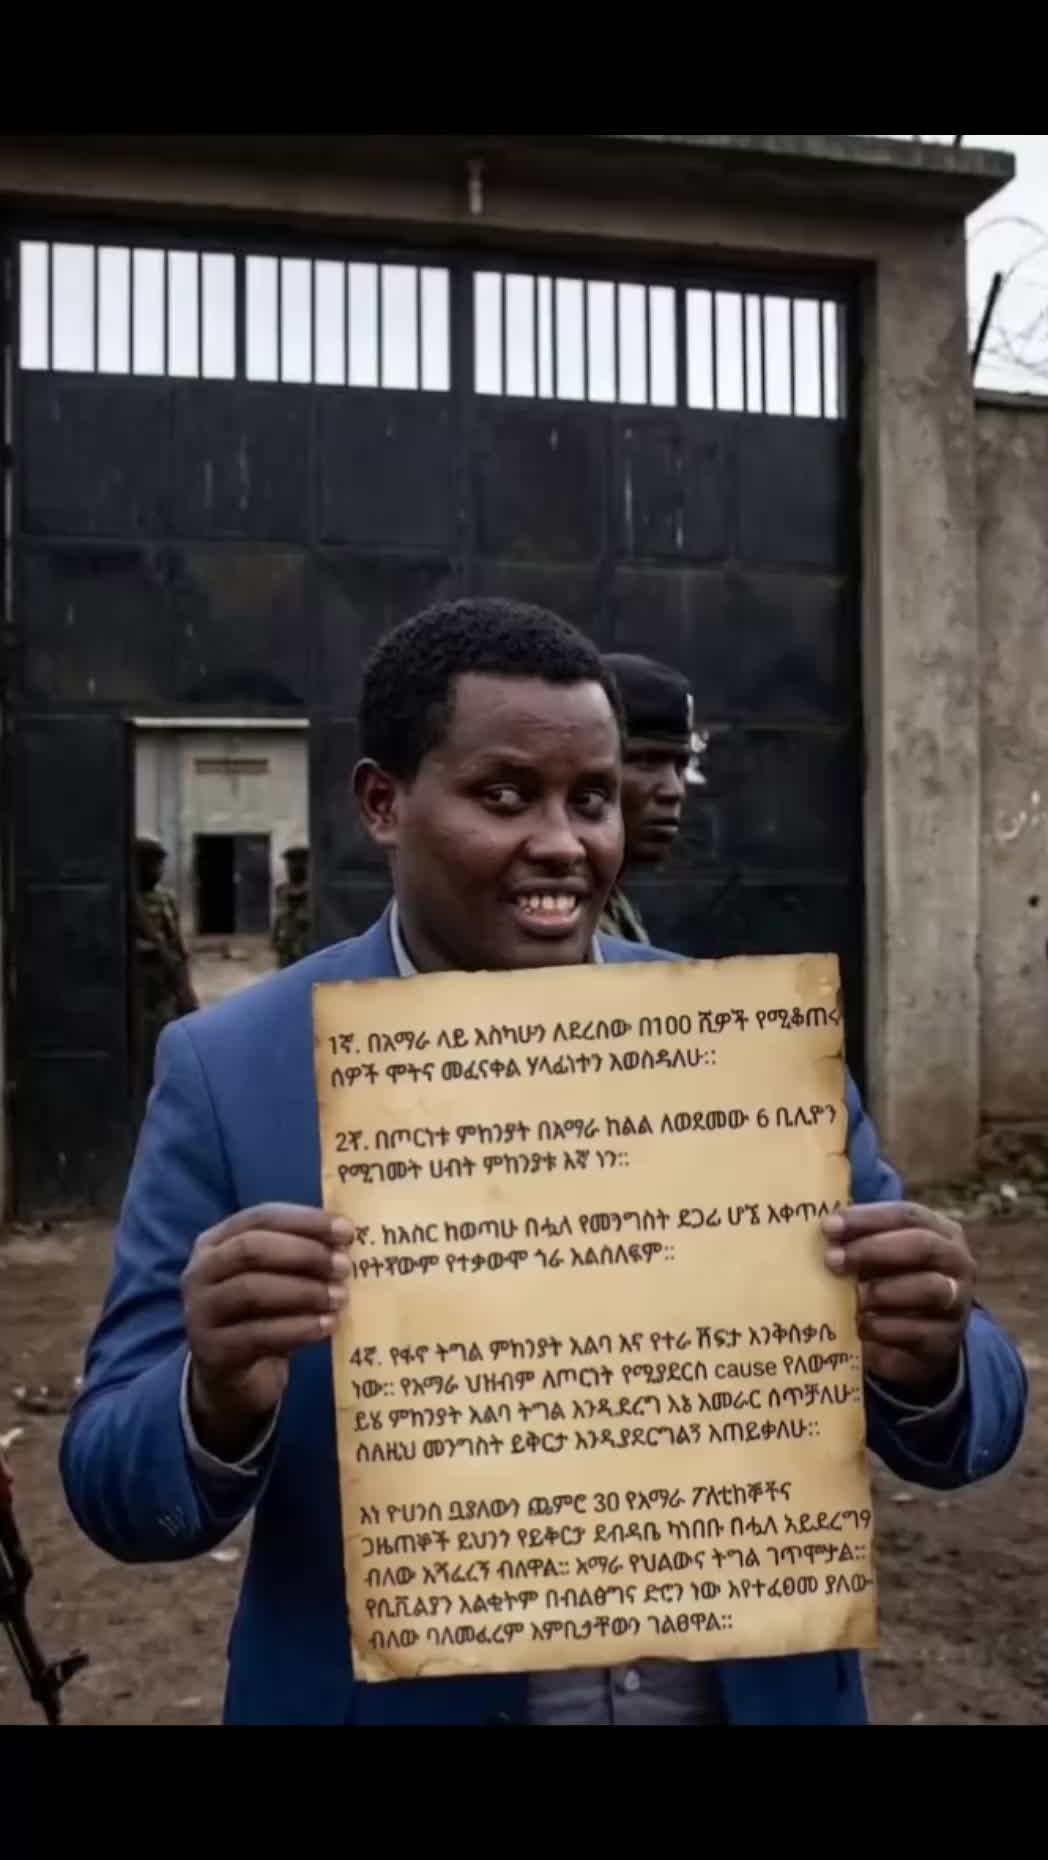 1ኛ. በአማራ ላይ እስካሁን ለደረሰው በ100 ሺዎች የሚቆጠሩ
ሰዎች ሞትና መፈናቀል ሃላፊነቱን እወስዳለሁ::
2ኛ. በጦርነቱ ምክንያት በአማራ ክልል ለወደመው 6 ቢሊዮን
የሚገመት ሀብት ምክንያቱ እኛ ነን::
ኛ. ከእስር ከወጣሁ በሗላ የመንግስት ደጋፊ ሆኜ እቀጥላ
የተቃውሞ ጎራ አልሰለፍም::
4ኛ. የፋኖ ትግል ምክንያት አልባ እና የተራ ሽፍታ እንቅስቃሴ
ነው:: የአማራ ህዝብም ለጦርነት የሚያደርስ cause የለውም::
ይሄ ምክንያት አልባ ትግል እንዲደረግ እኔ አመራር ሰጥቻለሁ::
ስለዚህ መንግስት ይቅርታ እንዲያደርግልኝ እጠይቃለሁ::
እነ ዮሀንስ ቧያለውን ጨምሮ 30 የአማራ ፖለቲከኞችና
ጋዜጠኞች ይህንን የይቅርታ ደብዳቤ ካነበቡ በሗላ አይደረግም
ብለው አሻፈረኝ ብለዋል:: አማራ የህልውና ትግል ገጥሞታል::
የሲቪልያን እልቂትም በብልፅግና ድሮን ነው እየተፈፀመ ያለው
ብለው ባለመፈረም እምቢታቸውን ገልፀዋል::